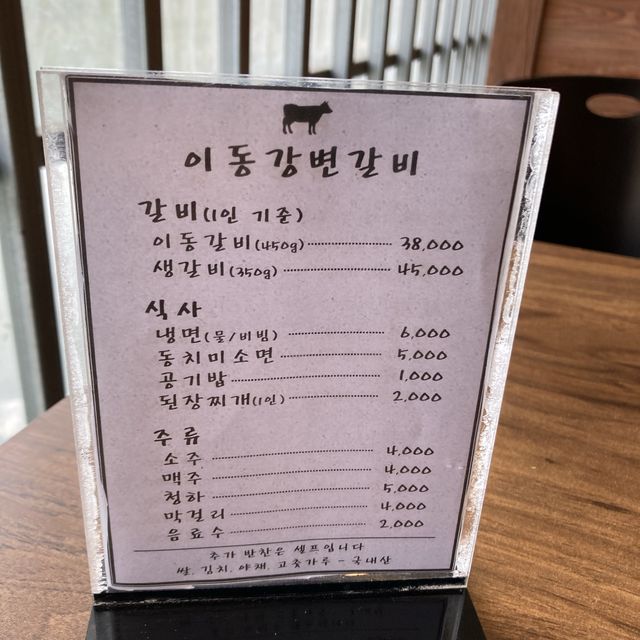 이동강변갈비
갈비(1인 기준)
이동갈비(450g) 38,000
생갈비(350g) 45,000
식사
냉면(물/비빔) 6,000
동치미소면 5,000
공기밥 1,000
된장찌개(1인) 2,000
주류
소주 4,000
맥주 4,000
청하 5,000
막걸리 4,000
음료수 2,000
추가 반찬은 셀프입니다
쌀, 김치, 야채, 고춧가루 - 국내산